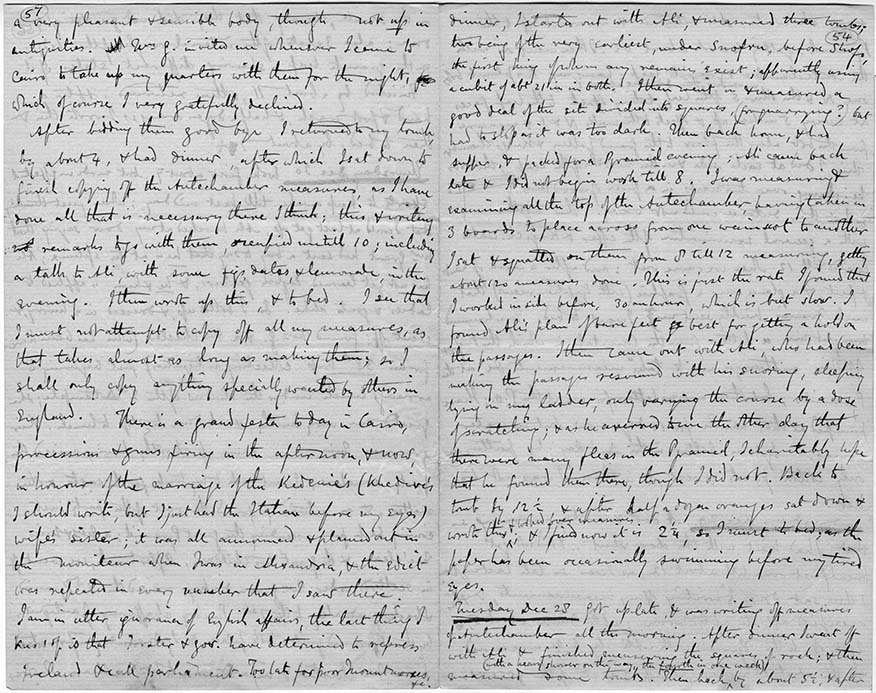 57
a very pleasant & sensible body, though not up in
antiquities. Mrs G. invited me whenever I came to
Cairo to take up my quarters with them for the night,
which of course I very gratefully declined.
After bidding them good bye I returned to my tomb,
by about 4, & had dinner, after which I sat down to
finish copying off the Antechamber measures, as I have
done all that is necessary there I think; this & writing
remarks to go with them, occupied until 10; including
a talk to Ali, with some figs, dates, & lemonade, in the
evening. I then wrote up this, & to bed. I see that
I must not attempt to copy off all my measures, as
that takes almost as long as making them; so I
shall only copy anything specially wanted by others in
England. There is a grand festa to day in Cairo,
processions & guns firing in the afternoon, & now,
in honour of the marriage of the Kedevie's (Khedive's
I should write, but I just had the Italian before my eyes)
wife's sister; it was all announced & planned out in
the moniteur when I was in Alexandria, & the edict
was repeated in every number that I saw there.
I am in utter ignorance of English affairs, the last thing I
knew of is that Forster & gov. have determined to repress
Ireland & call parliament. Too late for poor Mountmorres,
&c.
54
dinner, I started out with Ali, & measured three tombs;
two being of the very earliest, under Snofru, before Shofo,
the first king of whom any remains exist; apparently using
a cubit of abt 21 in in both. I then went on & measured a
good deal of the site divided into squares (for quarrying?) but
had to stop as it was too dark. Then back home, & had
supper, & packed for a Pyramid evening. Ali came back
late & I did not begin work till 8. I was measuring &
examining all the top of the Antechamber having taken in
3 boards to place across from one wainscot to another
I sat & squatted on them from 8 till 12 measuring, getting
about 120 measures done. This is just the rate I found that
I worked inside before, 30 an hour, which is but slow. I
found Ali's plan of bare feet best for getting a hold on
the passages. I then came out with Ali, who had been
making the passages resound with his snoring, sleeping
lying on my ladder, only varying the course by a dose
of scratching; & as he averred to me the other day that
there were many fleas in the Pyramid, I charitably hope
that he found them there, though I did not. Back to
tomb by 12½, & after half a dozen oranges sat down &
wrote this, & looked over measures, & find now it is 2¼, so I must to bed; as the
paper has been occasionally swimming before my tired
eyes.
Tuesday Dec 28 Got up late, & was writing off measures
of Antechamber all the morning. After dinner I went off
with Ali & finished measuring the squares of rock; & then
(with a heavy shower on the way, the fourth in one week)
measured some tombs. Then back by about 5½; & after